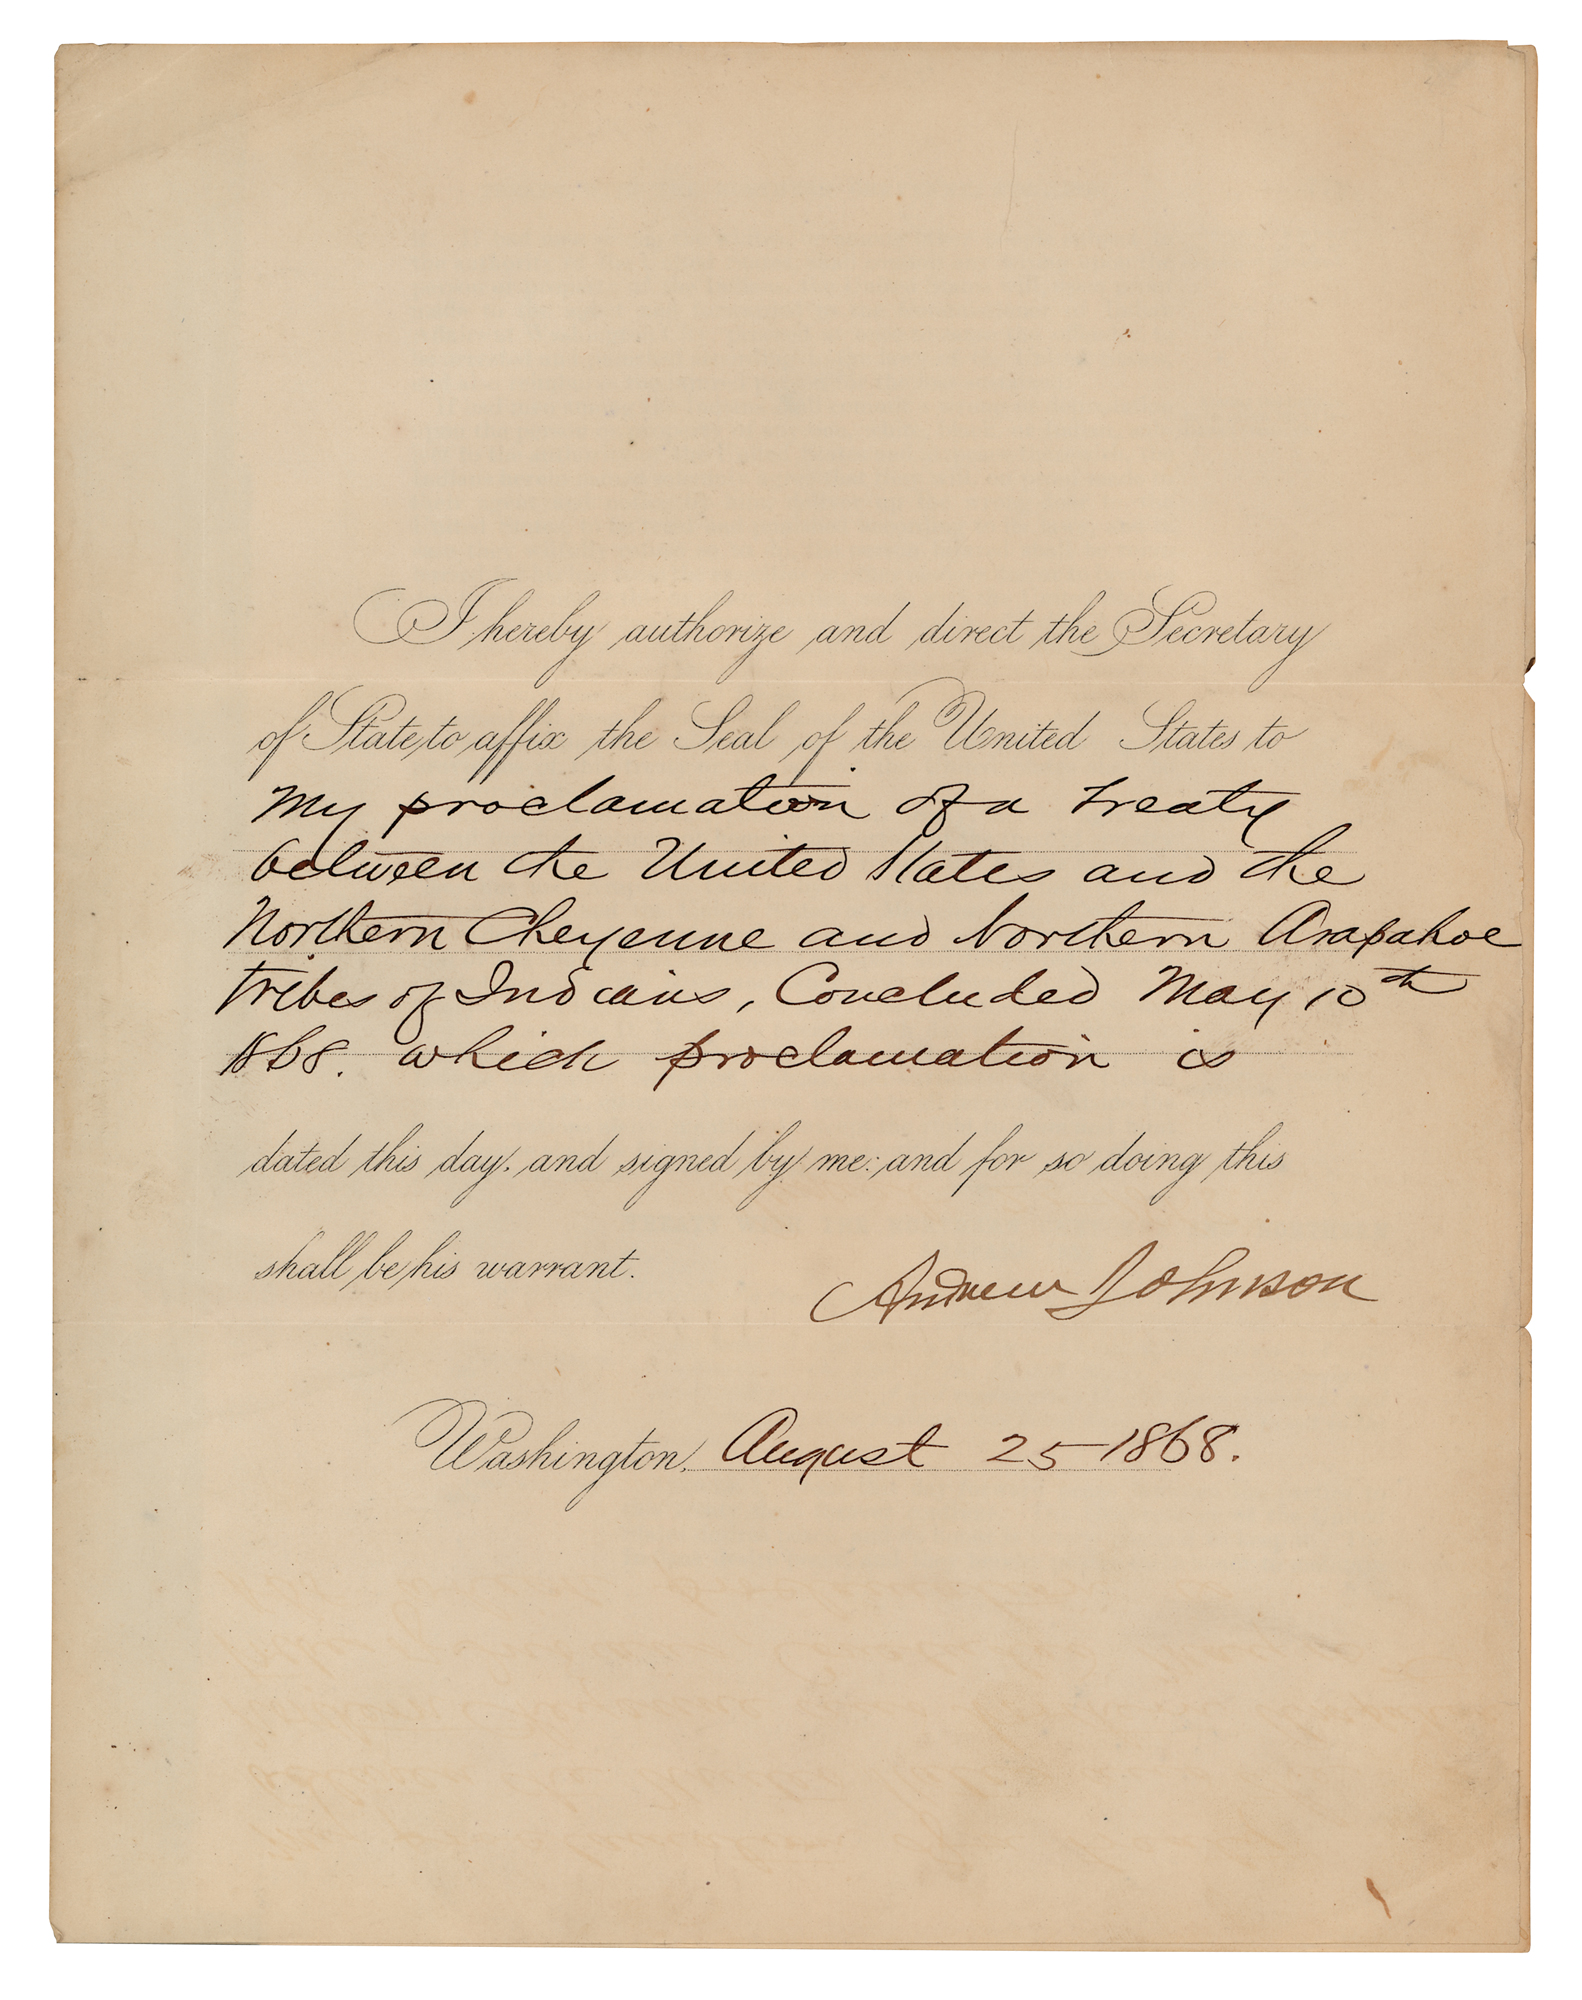 I hereby authorize and direct the Secretary
of State to affix the Seal of the United States to
my proclamation of a treaty
between the United States and the
Northern Cheyenne and Northern Arapahoe
tribes of Indians, Concluded May 10th
1868. which proclamation is
dated this day, and signed by me: and for so doing this
shall be his warrant.
Andrew Johnson
Washington, August 25 1868.